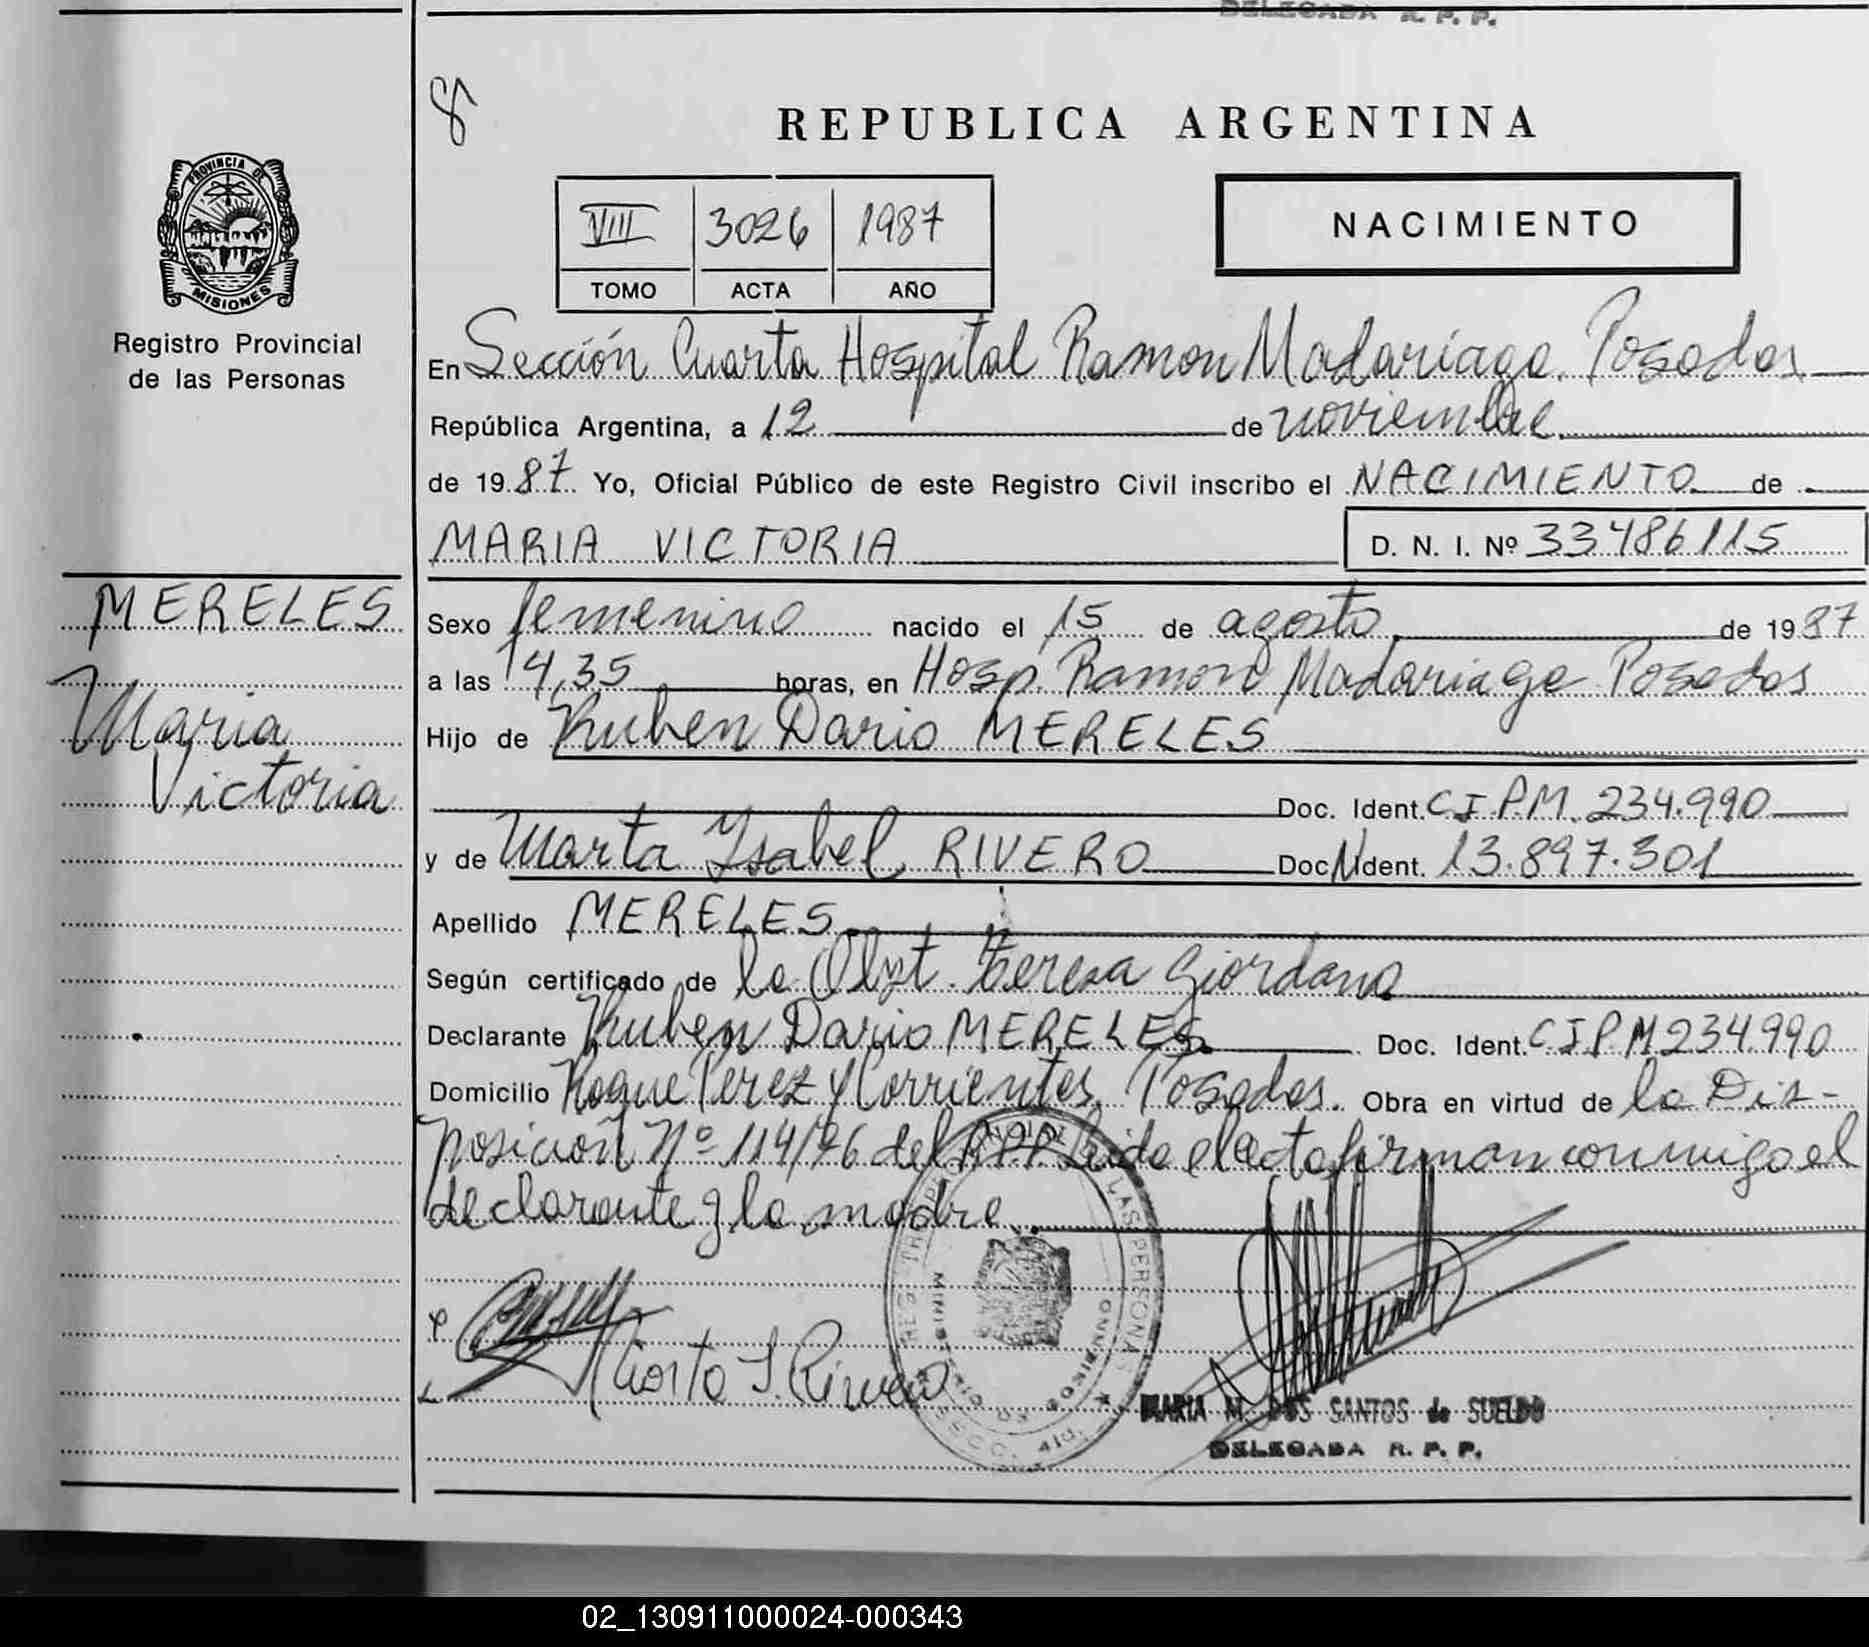 DELEGADA R. P. P.
8
REPUBLICA ARGENTINA
PROVINCIA DE
MISIONES
Registro Provincial
de las Personas
VIII 3026 1987
TOMO ACTA AÑO
NACIMIENTO
En Sección Cuarta Hospital Ramon Madariaga. Posadas
República Argentina, a 12 de noviembre
de 1987 Yo, Oficial Público de este Registro Civil inscribo el NACIMIENTO de
MARIA VICTORIA D. N. I. Nº 33486115
MERELES
Maria
Victoria
Sexo femenino nacido el 15 de agosto de 1987
a las 14,35 horas, en Hosp. Ramon Madariaga Posadas
Hijo de Ruben Dario MERELES
Doc. Ident. C I P.M. 234.990
y de Marta Ysabel RIVERO Doc N Ident. 13.897.301
Apellido MERELES
Según certificado de la Obst. Teresa Giordano
Declarante Ruben Dario MERELES Doc. Ident. C I P M 234990
Domicilio Roque Perez y Corrientes. Posadas. Obra en virtud de la Dis-
posición Nº 114/76 del R.P.P. Leida el acta firman conmigo el
declarante y la madre
Marta I. Rivero
LAS PERSONAS
MINISTERIO DE GOBIERNO
MARIA M. DOS SANTOS de SUELDO
DELEGADA R. P. P.
02_130911000024-000343